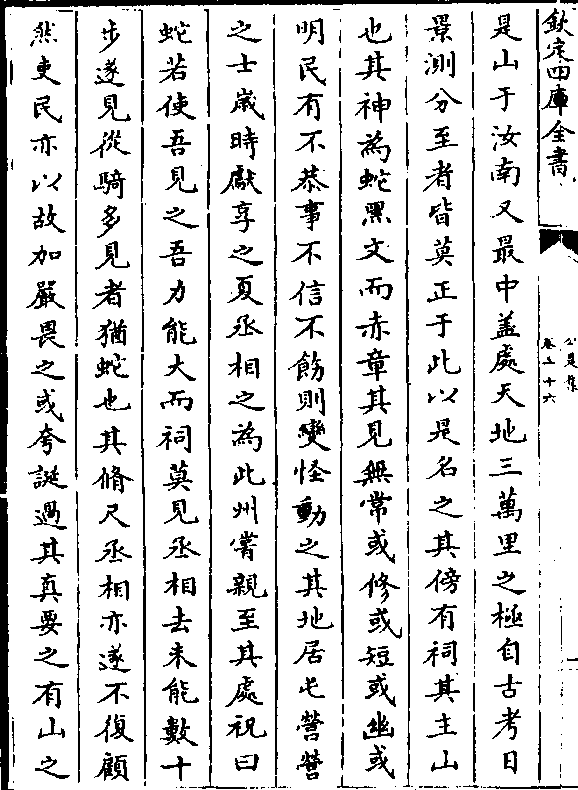 欽定四庫全書
公是集
卷三十六
是山于汝南又最中蓋處天地三萬里之極自古考日
景測分至者皆莫正于此以是名之其傍有祠其主山
也其神為蛇黑文而赤章其見無常或修或短或幽或
明民有不恭事不信不飭則變怪動之其地居屯營營
之士歲時獻享之夏丞相之為此州嘗親至其處祝曰
蛇若使吾見之吾力能大而祠莫見丞相去未能數十
步遂見從騎多見者猶蛇也其脩尺丞相亦遂不復顧
然吏民亦以故加嚴畏之或夸誕過其真要之有山之